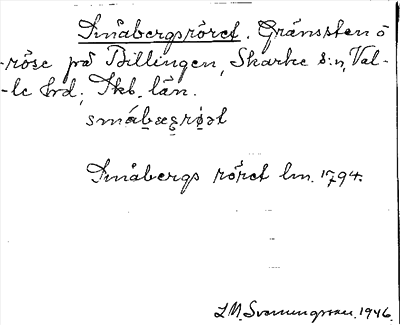 Småbergsröret. Gränssten o
-röse på Billingen, Skarke s:n, Val-
-le hrd., Skb. län.
småbærrø̣t
Småbergs röret lm. 1794.
I. M. Svenningsson. 1946.